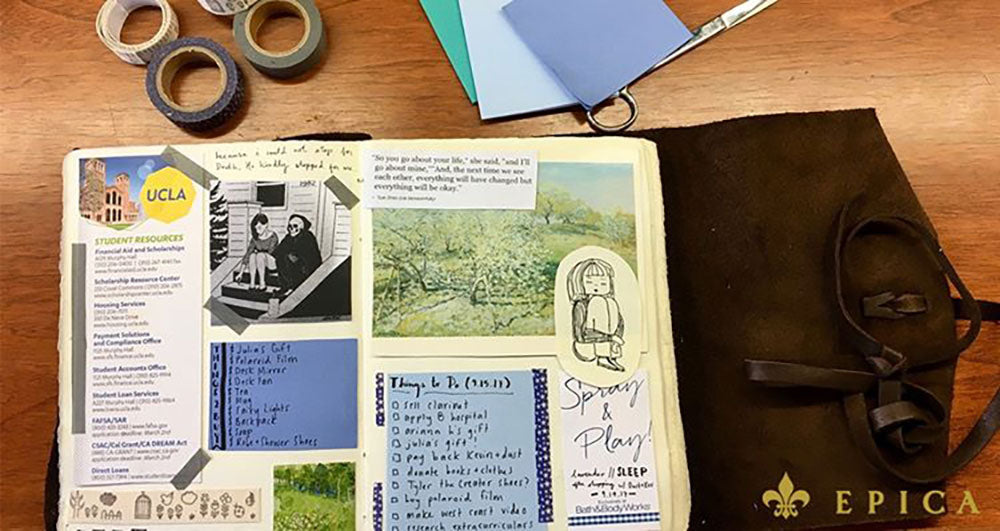 UCLA
STUDENT RESOURCES
Financial Aid and Scholarships
A129 Murphy Hall
(310) 206-0400 | (310) 267-4140 fax
www.financialaid.ucla.edu
Scholarship Resource Center
233 Covel Commons | (310) 206-2875
www.scholarshipcenter.ucla.edu
Housing Services
(310) 206-7011
360 De Neve Drive
www.housing.ucla.edu
Payment Solutions
and Compliance Office
1121 Murphy Hall
www.sfs.finance.ucla.edu
Student Accounts Office
1121 Murphy Hall | (310) 825-9194
www.sfs.finance.ucla.edu
Student Loan Services
A227 Murphy Hall | (310) 825-9864
www.loans.ucla.edu
FAFSA/SAR
www.fafsa.gov
application deadline: March 2nd
CSAC/Cal Grant/CA DREAM Act
(888) CA-GRANT | www.csac.ca.gov
application deadline: March 2nd
Direct Loans
because i could not stop for
Death, He kindly stopped for me
1982
THINGS 2 BUY
Julia's Gift
Polaroid Film
Desk Mirror
Desk Fan
Tea
Mug
Fairy Lights
Backpack
Soap
Shower Shoes
"So you go about your life," she said, "and I'll
go about mine," "And, the next time we see
each other, everything will have changed but
everything will be okay."
Things to Do (9.15.17)
sell clarinet
apply @ hospital
ariana b's gift
julia's gift
pay back Kevin + dust
donate books + clothes
Tyler the Creator shoes?
buy polaroid film
make west coast video
research extracurriculars
Spray
&
Play!
lavender // SLEEP
9.14.17
Bath & Body Works
EPICA